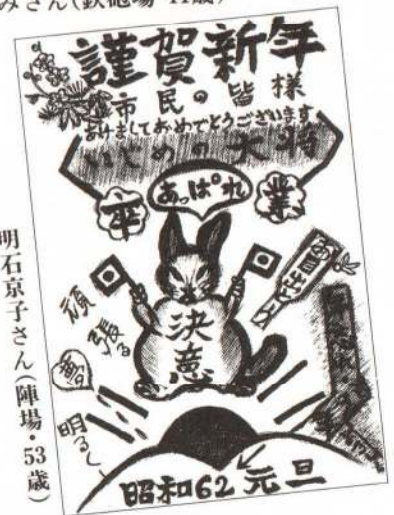 みさん(鉄砲場・41歳)
謹賀新年
市民の皆様
あけましておめでとうございます
いじめの大将
卒業
あっぱれ
決意
頑張る
明るく
昭和62元旦
明石京子さん(陣場・53歳)